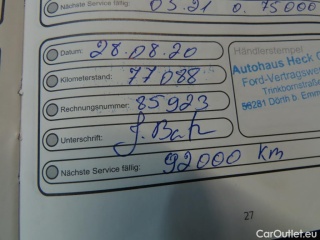 Nächste Service fällig: 03.21 o. 75000
Datum: 28.08.20
Kilometerstand: 77088
Rechnungsnummer: 85923
Unterschrift:
Nächste Service fällig: 92000 km
Händlerstempel
Autohaus Heck
Ford-Vertragswe
Trinkbornstraße
56281 Dörth b. Emm
27
CarOutlet.eu